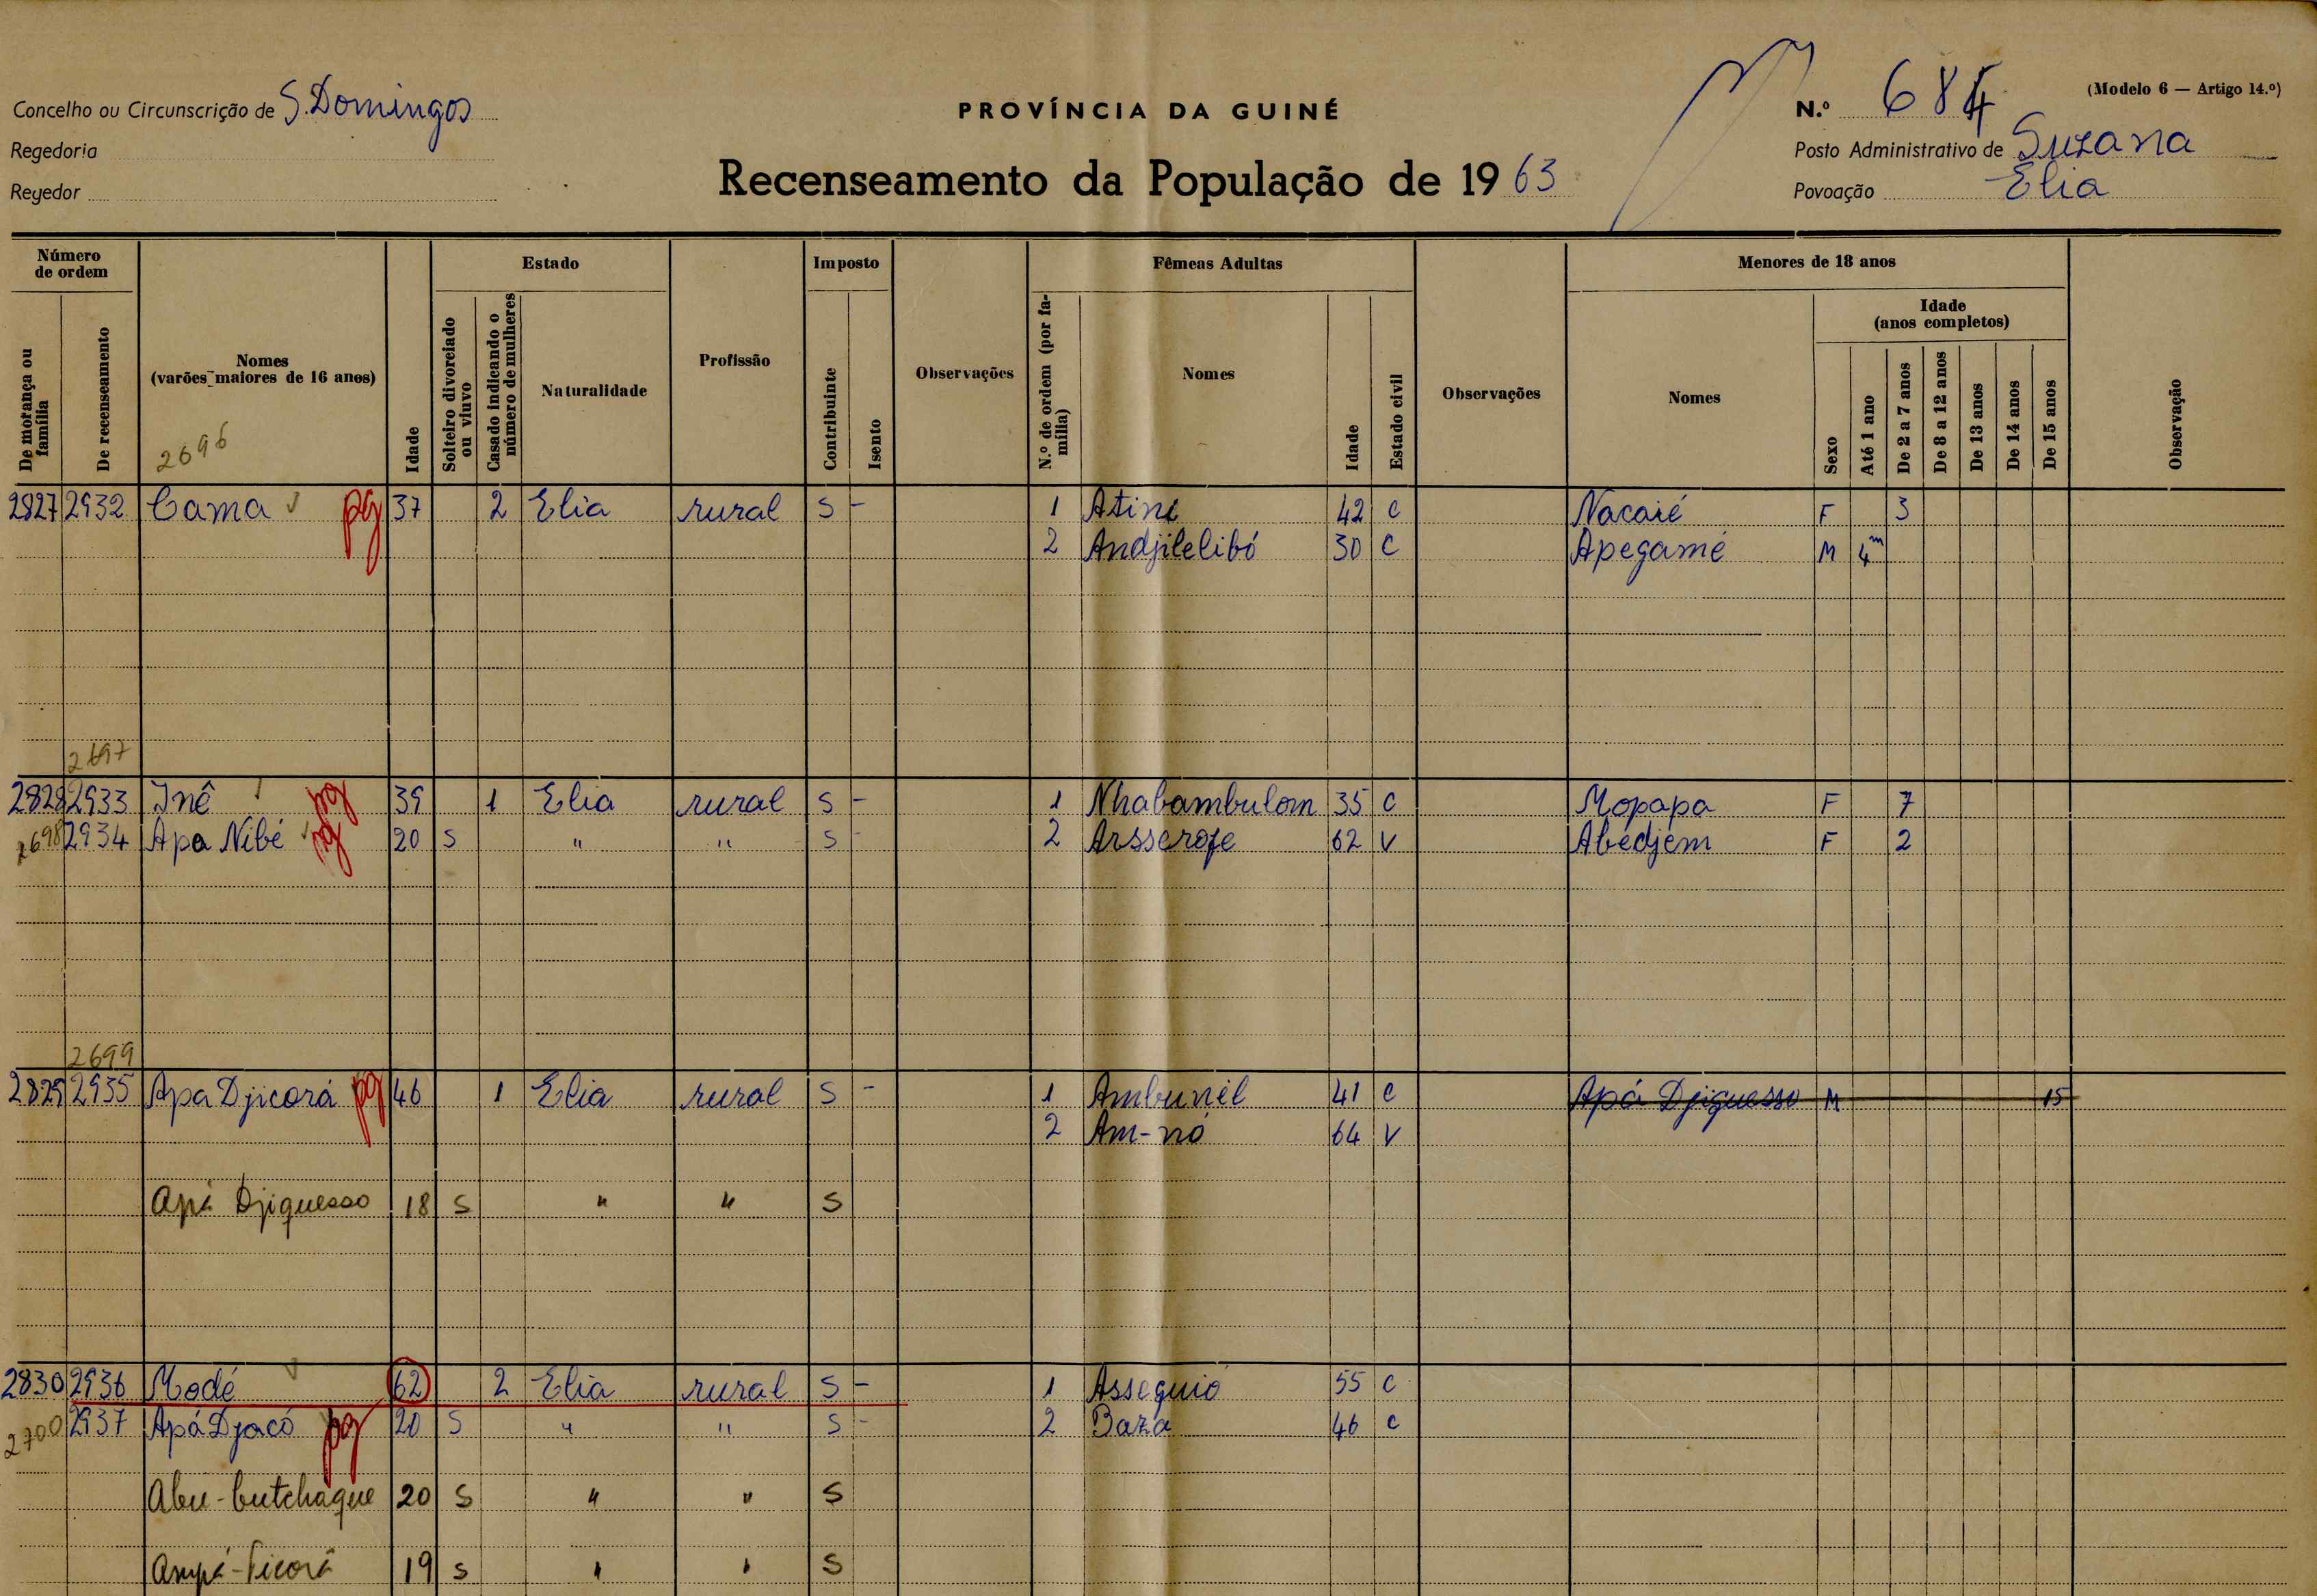 Concelho ou Circunscrição de S. Domingos
PROVÍNCIA DA GUINÉ
N.º 684
(Modelo 6 — Artigo 14.º)
Regedoria
Posto Administrativo de Suzana
Regedor
Recenseamento da População de 1963
Povoação Elia
Número de ordem
De morança ou família
De recenseamento
Nomes (varões maiores de 16 anos)
2696
Idade
Estado
Solteiro divorciado ou viuvo
Casado indicando o número de mulheres
Naturalidade
Profissão
Imposto
Contribuinte
Isento
Observações
Fêmeas Adultas
N.º de ordem (por família)
Nomes
Idade
Estado civil
Observações
Menores de 18 anos
Nomes
Sexo
Idade (anos completos)
Até 1 ano
De 2 a 7 anos
De 8 a 12 anos
De 13 anos
De 14 anos
De 15 anos
Observação
2827 2932 Cama pg 37 2 Elia rural S - 1 Atine 42 C Nacaié F 3
2 Andjilelibó 30 C Apegamé M 4m
2697
2828 2933 Inê pg 39 1 Elia rural S - 1 Nhabambulom 35 C Mopapa F 7
2698 2934 Apa Nibé pg 20 S " " S - 2 Arsserofe 62 V Abedjem F 2
2699
2829 2935 Apa Djicorá pg 46 1 Elia rural S - 1 Ambunél 41 C Apá Djiquesso M 15
2 Am-nó 64 V
Apá Djiquesso 18 S " " S
2830 2936 Modé 62 2 Elia rural S - 1 Asseguió 55 C
2700 2937 Apá Djacó pg 20 S " " S - 2 Baza 46 C
Abu-butchaque 20 S " " S
Ampá-Ficorá 19 S " " S